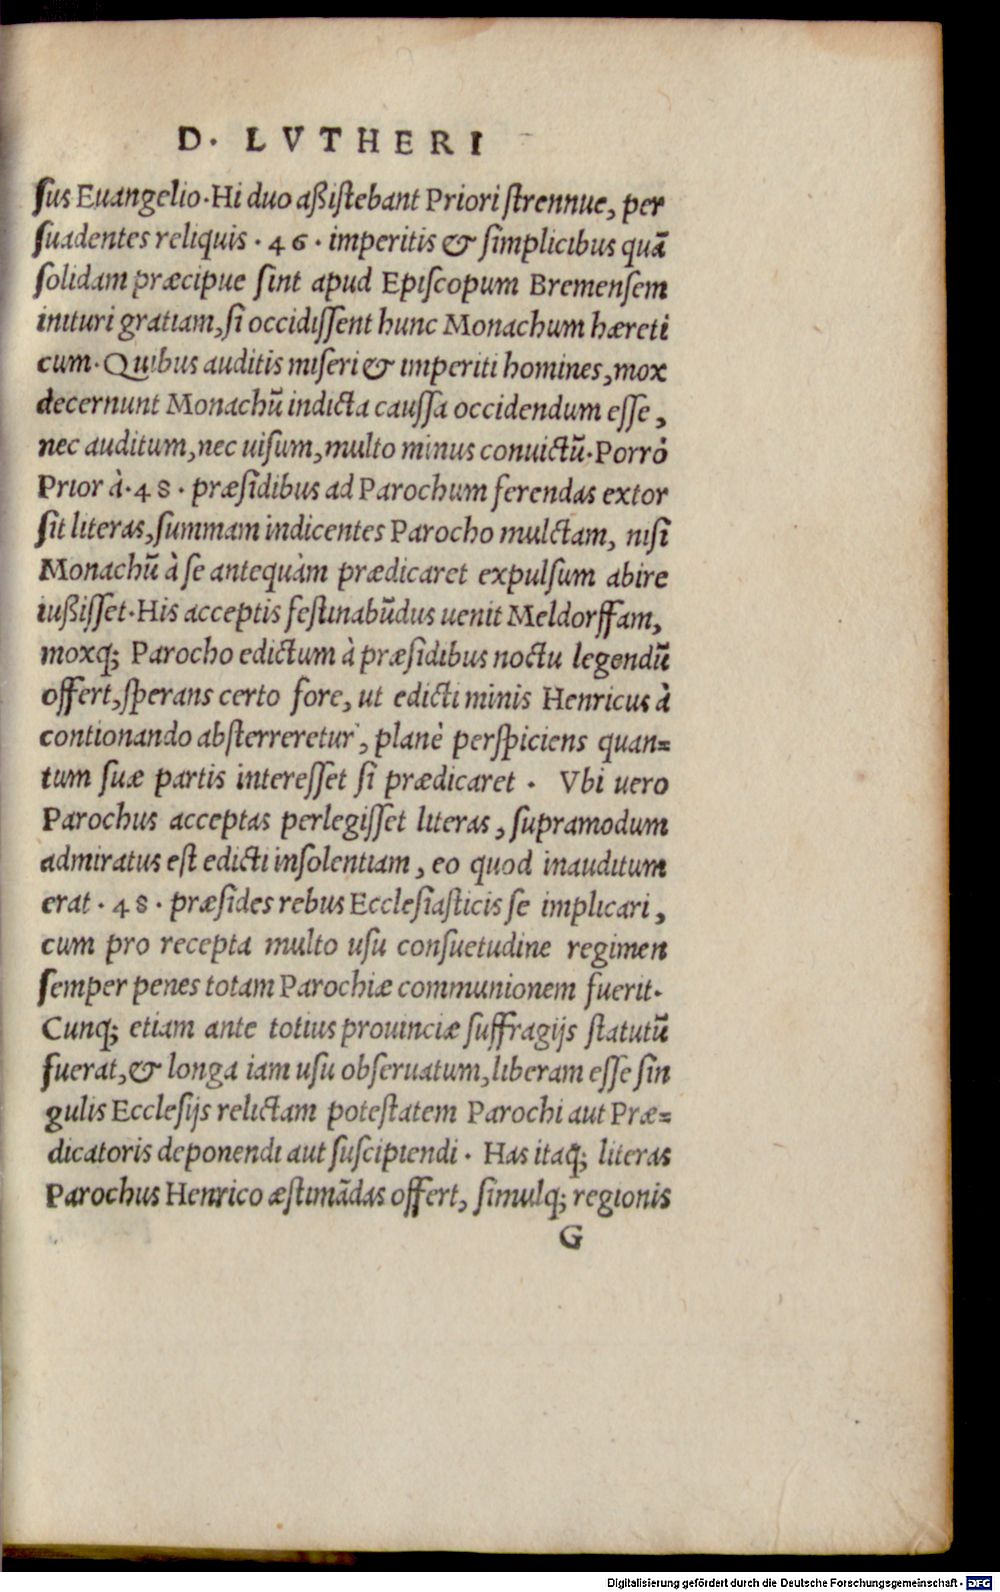 D. LVTHERI
ſus Euangelio. Hi duo aßiſtebant Priori ſtrennue, per
ſuadentes reliquis . 46 . imperitis & ſimplicibus quã
ſolidam præcipue ſint apud Epiſcopum Bremenſem
inituri gratiam, ſi occidiſſent hunc Monachum hæreti
cum. Quibus auditis miſeri & imperiti homines, mox
decernunt Monachũ indicta cauſſa occidendum eſſe,
nec auditum, nec uiſum, multo minus conuictũ. Porrò
Prior à .48 . præſidibus ad Parochum ferendas extor
ſit literas, ſummam indicentes Parocho mulctam, niſi
Monachũ à ſe antequàm prædicaret expulſum abire
iußiſſet. His acceptis feſtinabũdus uenit Meldorffam,
moxq; Parocho edictum à præſidibus noctu legendũ
offert, ſperans certo fore, ut edicti minis Henricus à
contionando abſterreretur, planè perſpiciens quan=
tum ſuæ partis intereſſet ſi prædicaret . Vbi uero
Parochus acceptas perlegiſſet literas, ſupramodum
admiratus eſt edicti inſolentiam, eo quod inauditum
erat . 48 . præſides rebus Eccleſiaſticis ſe implicari,
cum pro recepta multo uſu conſuetudine regimen
ſemper penes totam Parochiæ communionem fuerit.
Cunq; etiam ante totius prouinciæ ſuffragijs ſtatutũ
fuerat, & longa iam uſu obſeruatum, liberam eſſe ſin
gulis Eccleſijs relictam poteſtatem Parochi aut Præ=
dicatoris deponendi aut ſuſcipiendi . Has itaq; literas
Parochus Henrico æſtimãdas offert, ſimulq; regionis
G
Digitalisierung gefördert durch die Deutsche Forschungsgemeinschaft - DFG